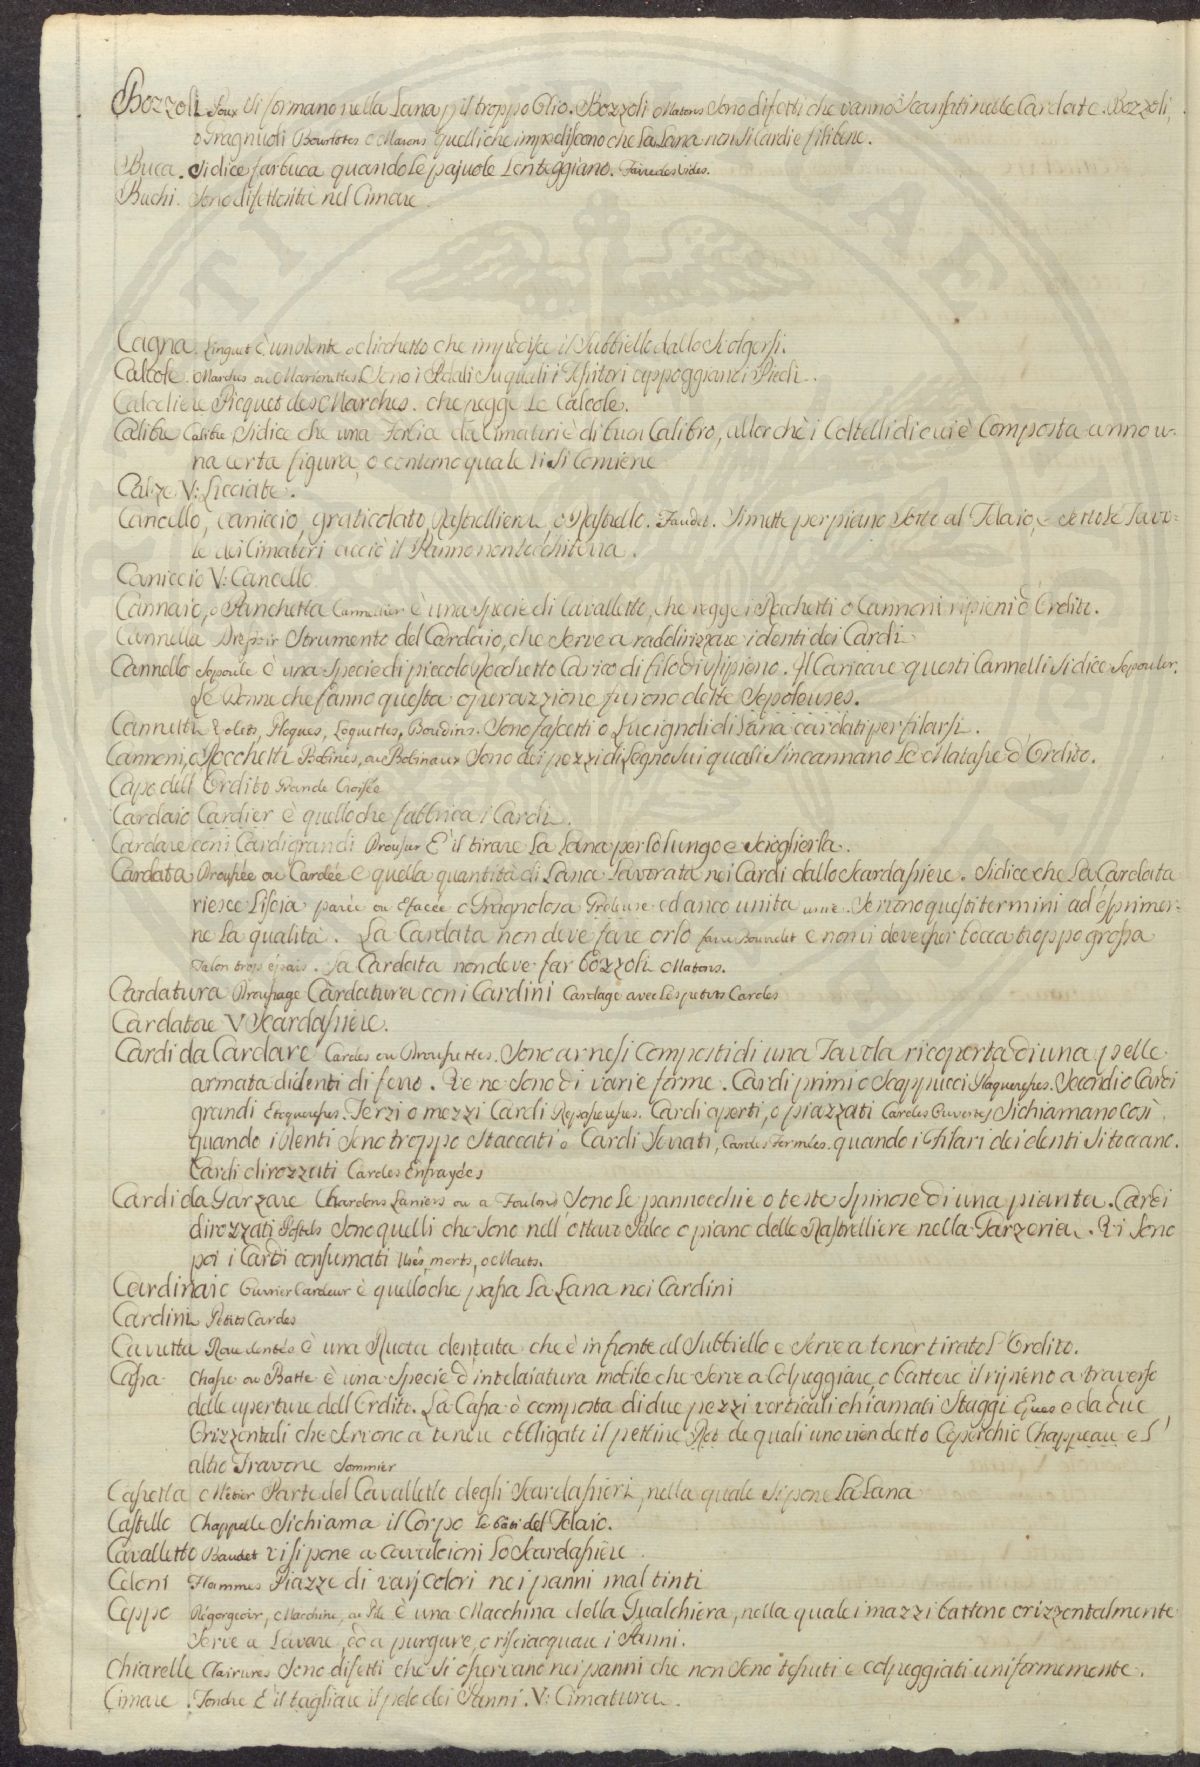 Bozzoli Poux Si formano nella Lana p il troppo Olio. Bozzoli Matons Sono difetti che vanno scansati nelle Cardate. Bozzoli,
o Fragnuoli Bourlotes o Matons quelli che impediscono che la Lana non si Cardi e fili bene.
Buca. Si dice far buca quando le pajuole Lenteggiano. Faire des Vides.
Buchi. Sono difettosità nel Cimare
Cagna. Linguet è un dente o clicchetto che impedisce il Subbiello dallo Sciolgersi.
Calcole. Marches ou Marionettes. Sono i Pedali su quali i Tessitori appoggiano i Piedi.
Calceliere Picquet des Marches. che regge le Calcole.
Calibre Calibre Si dice che una Forbia da Cimatori è di buon Calibro, allorchè i Coltelli di cui è Composta anno u-
na certa figura, o contorno quale si Conviene
Calze V: Licciate.
Cancello, caniccio, graticolato, Rastrelliera, o Rastrello. Faudet. Si mette per piano sotto al Telaio, e sotto le Tavo-
le dei Cimatori acciò il Panno non tocchi terra.
Caniccio V: Cancello
Cannaio, o Panchetta Cannellier è una Specie di Cavalletto, che regge i Rocchetti o Cannoni ripieni d'Ordito.
Cannella Dressoir Strumento del Cardaio, che serve a raddirizzare i denti dei Cardi
Cannello Sepoule è una Specie di piccolo Rocchetto Carico di filo di ripieno. Il Caricare questi Cannelli si dice Sepouler.
Le Donne che fanno questa operazzione furono dette Sepoleuses.
Cannelli Rolets, Ploques, Loquettes, Boudins. Sono fascetti o Lucignoli di Lana cardati per filarsi.
Cannoni, o Rocchetti Bobines, ou Bobinaux Sono dei pezzi di Legno sui quali s'incannano le Matasse d'Ordito.
Capo dell'Ordito Grande Croisée
Cardaio Cardier è quello che fabbrica i Cardi.
Cardare coni Cardi grandi Drousser È il tirare la Lana per lo lungo e Sciogliersla.
Cardata Droussée ou Cardée è quella quantità di Lana Lavorata nei Cardi dallo Scardassiere. Si dice che la Cardata
riesce Liscia parée ou Efacée o Fragnolosa Groleuse ed anco unita unie. Servono questi termini ad esprimer-
ne la qualità. La Cardata non deve fare orlo faire Bourrelet e non vi deve esser bocca troppo grossa
Talon trop épais. La Cardata non deve far bozzoli Matons.
Cardatura Droussage Cardatura coni Cardini Cardage avec les petits Cardes
Cardatore V Scardassiere.
Cardi da Cardare Cardes ou Droussettes. Sono arnesi Composti di una Tavola ricoperta di una pelle
armata di denti di ferro. Ve ne sono di varie forme. Cardi primi o Scappucci Plaqueresses. Secondi o Cardi
grandi Etoqueresses. Terzi o mezzi Cardi Repasseresses. Cardi aperti, o piazzati Cardes Ouvertes Si chiamano Così
quando i denti Sono troppo Staccati o Cardi Serrati, Cardes Fermées. quando i Filari dei denti si toccano.
Cardi dirozzati Cardes Enfrayées
Cardi da Garzare Chardons Laniers ou a Foulons Sono le pannocchie o teste Spinose di una pianta. Cardi
dirozzati Postels Sono quelli che sono nell'ottavo Palco o piano delle Rastrelliere nella Garzeria. Vi sono
poi i Cardi consumati Usés, morts, o Mouts.
Cardinaio Ouvrier Cardeur è quello che passa la Lana nei Cardini
Cardini Petits Cardes
Caruetta Roue dentée è una Ruota dentata che è in fronte al Subbiello e serve a tener tirato l'Ordito.
Cassa Chasse ou Batte è una Specie d'intelaiatura mobile che serve a Colpeggiare, o battere il ripieno a traverso
delle aperture dell'Ordito. La Cassa è composta di due pezzi verticali chiamati Staggi Epées e da due
Orizzontali che servono a tenere obbligato il pettine Rot de quali uno vien detto Coperchio Chappeau e l'
altro Travone Sommier
Cassetta Métier Parte del Cavalletto degli Scardassieri, nella quale si pone la Lana
Castello Chappelle Si chiama il Corpo le bâti del Telaio.
Cavalletto Baudet vi si pone a cavalcioni lo Scardassiere.
Celoni Flammes Piazze di varj colori nei panni mal tinti
Ceppo Régorgeoir, Macchine, ou Pile è una Macchina della Gualchiera, nella quale i mazzi battono orizzontalmente
serve a Lavare, ed a purgare, o risciacquare i Panni.
Chiarelle Clairures Sono difetti che si osservano nei panni che non sono tessuti e colpeggiati uniformemente.
Cimare. Tondre È il tagliare il pelo dei Panni. V: Cimatura.